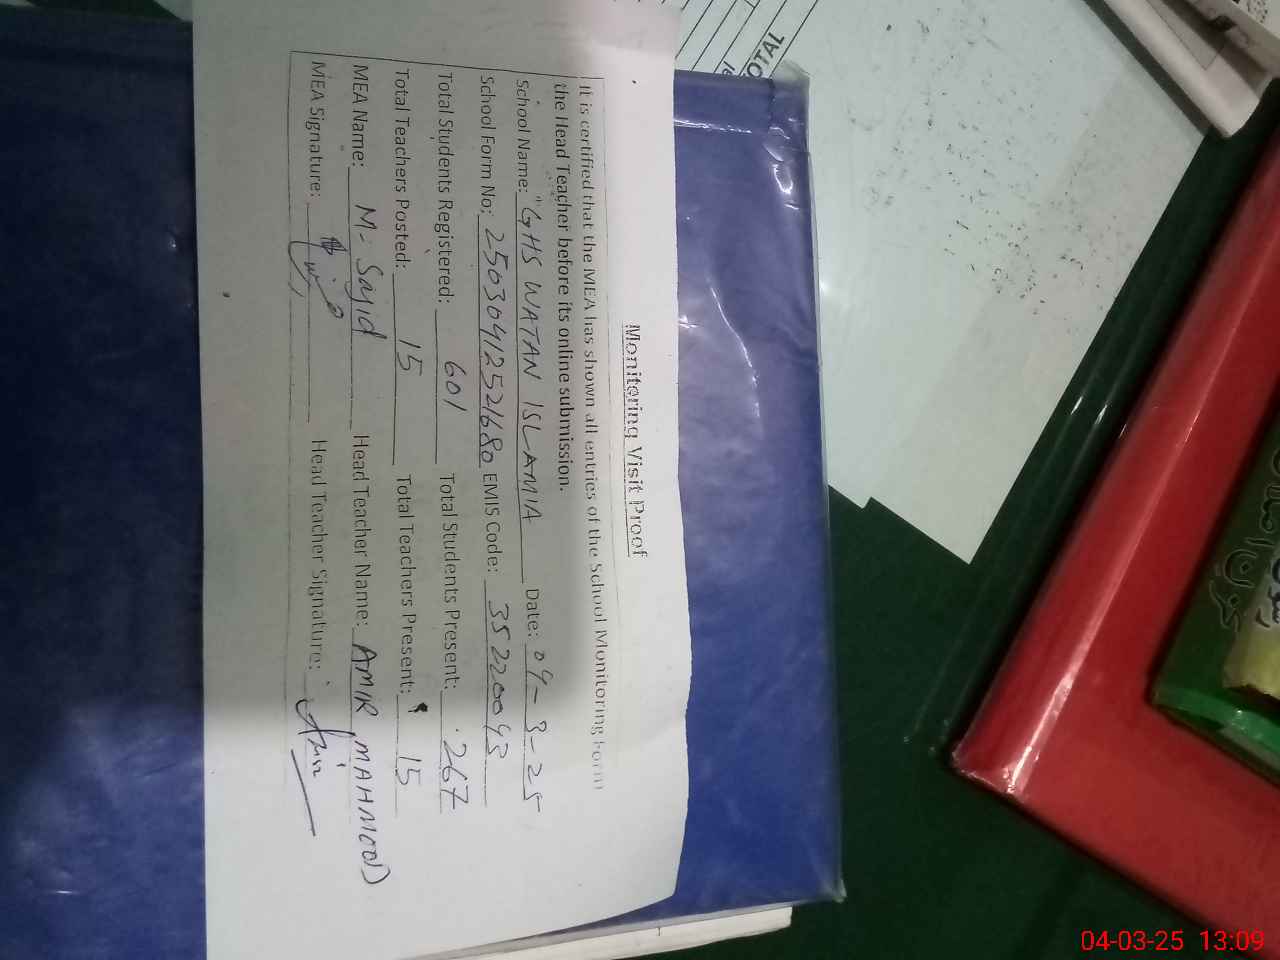 Monitoring Visit Proof
It is certified that the MEA has shown all entries of the School Monitoring Form
the Head Teacher before its online submission.
School Name: "GHS WATAN ISLAMIA Date: 04-3-25
School Form No: 25030412521680 EMIS Code: 35220043
Total Students Registered: 601 Total Students Present: 267
Total Teachers Posted: 15 Total Teachers Present: 15
MEA Name: M-Sajid Head Teacher Name: AMIR MAHMOOD
MEA Signature: Head Teacher Signature:
TOTAL
04-03-25 13:09